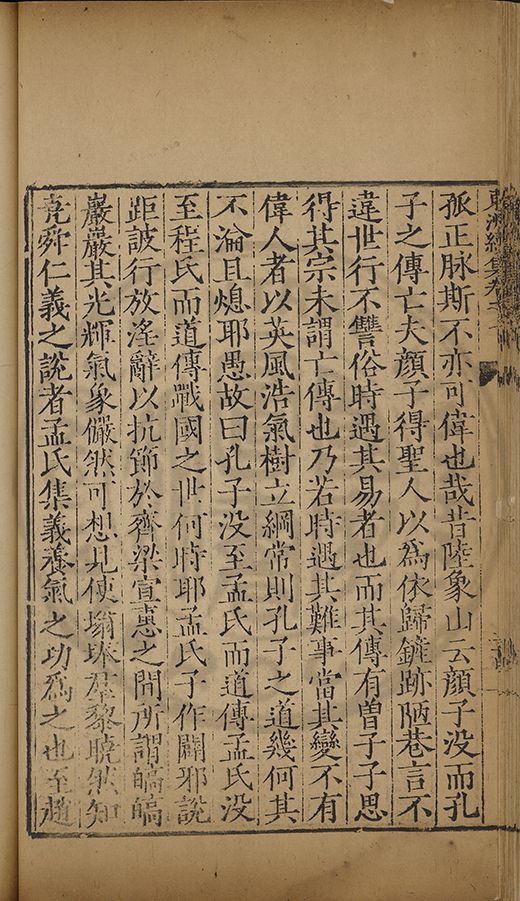 孤正脉斯不亦可偉也哉昔陸象山云顔子没而孔
子之傳亡夫顔子得聖人以爲依歸鏟跡陋巷言不
違世行不讐俗時遇其易者也而其傳有曽子子思
得其宗未謂亡傳也乃若時遇其難事當其變不有
偉人者以英風浩氣樹立綱常則孔子之道幾何其
不淪且熄耶愚故曰孔子没至孟氏而道傳孟氏没
至程氏而道傳戰國之世何時耶孟氏子作闢邪說
距詖行放淫辭以抗節於齊梁宣惠之間所謂皜皜
巖巖其光輝氣象儼然可想見使嵡埲羣黎曉然知
堯舜仁義之說者孟氏集義養氣之功爲之也至趙